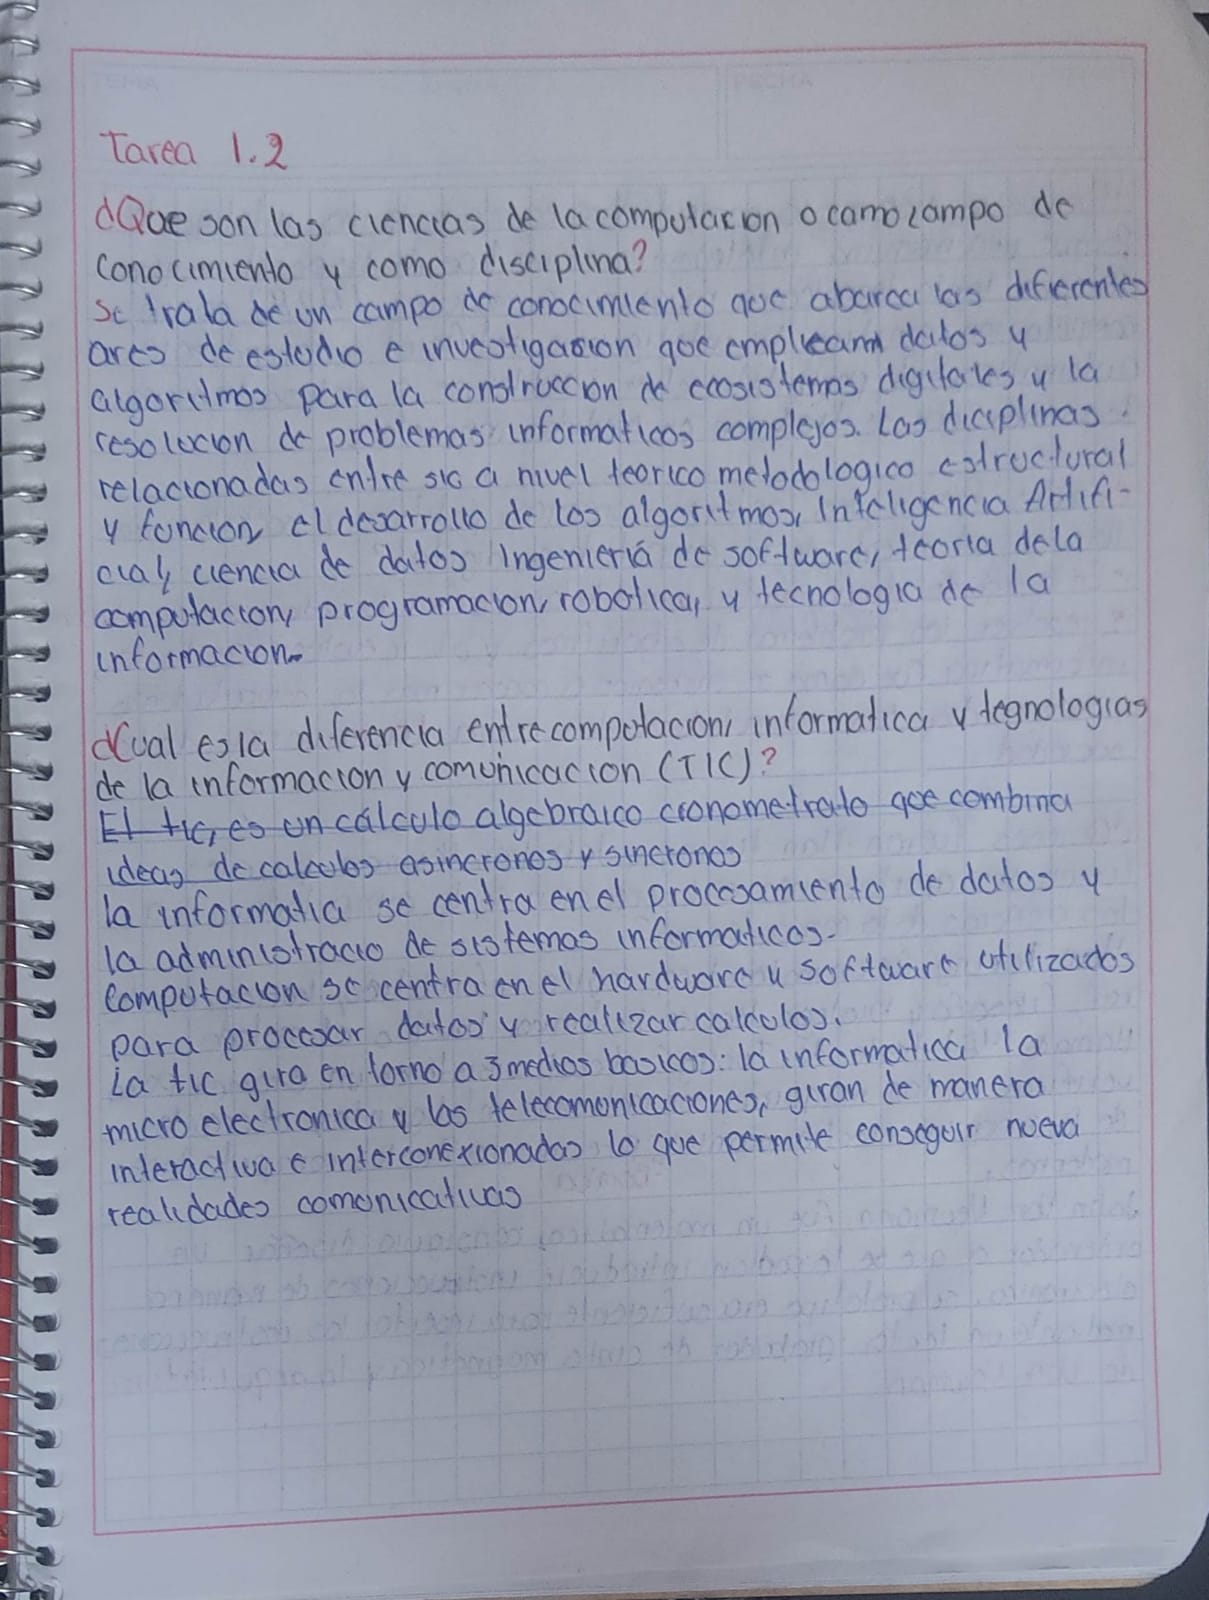 TEMA FECHA
Tarea 1.2
¿Que son las ciencias de la computacion o como campo de
conocimiento y como disciplina?
Se trata de un campo de conocimiento que abarca las diferentes
ares de estudio e investigacion que emplean datos y
algoritmos para la construccion de ecosistemas digitales y la
resolucion de problemas informaticos complejos. Las diciplinas
relacionadas entre sic a nivel teorico metodologico estructural
y funcion, el desarrollo de los algoritmos, Inteligencia Artifi-
cial, ciencia de datos Ingenieria de software, teoria dela
computacion, programacion, robotica, y tecnologia de la
informacion.
¿Cual es la diferencia entre computacion, informatica y tegnologias
de la informacion y comunicacion (TIC)?
El tic, es un cálculo algebraico cronometrato que combina
ideas de calculos asincronos y sincronos
la informatia se centra en el procesamiento de datos y
la administracio de sistemas informaticos.
Computacion se centra en el hardware y software utilizados
para procesar datos y realizar calculos.
La tic gira en torno a 3 medios basicos: la informatica la
micro electronica y las telecomunicaciones, giran de manera
interactiva e interconexionadas lo que permite conseguir nueva
realidades comunicativas